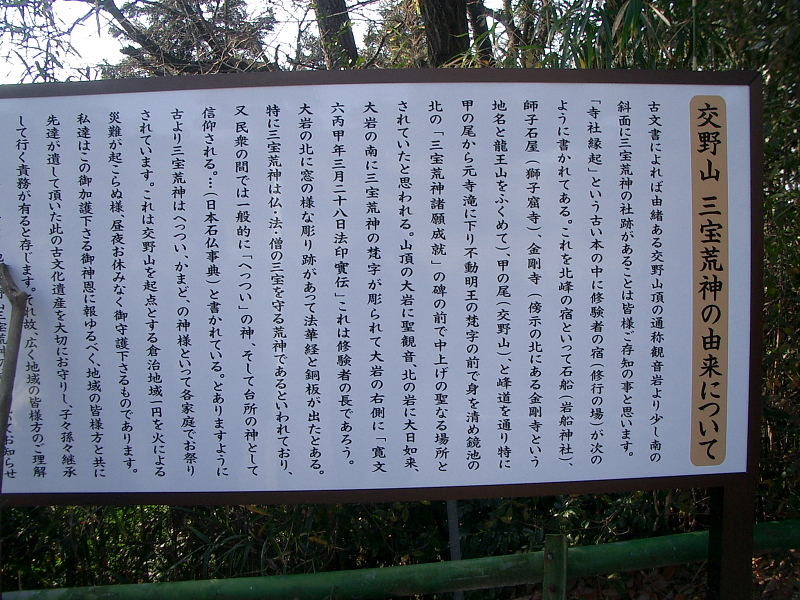 交野山 三宝荒神の由来について
古文書によれば由緒ある交野山頂の通称観音岩より少し南の
斜面に三宝荒神の社跡があることは皆様ご存知の事と思います。
「寺社縁起」という古い本の中に修験者の宿（修行の場）が次の
ように書かれてある。これを北峰の宿といって石船（岩船神社）、
師子石屋（獅子窟寺）、金剛寺（傍示の北にある金剛寺という
地名と龍王山をふくめて）、甲の尾（交野山）、と峰道を通り特に
甲の尾から元寺滝に下り不動明王の梵字の前で身を清め鏡池の
北の「三宝荒神諸願成就」の碑の前で中上げの聖なる場所と
されていたと思われる。山頂の大岩に聖観音、北の岩に大日如来、
大岩の南に三宝荒神の梵字が彫られて大岩の右側に「寛文
六丙甲年三月二十八日法印實伝」これは修験者の長であろう。
大岩の北に窓の様な彫り跡があって法華経と銅板が出たとある。
特に三宝荒神は仏・法・僧の三宝を守る荒神であるといわれており、
又民衆の間では一般的に「へっつい」の神、そして台所の神として
信仰される。…（日本石仏事典）と書かれている。とありますように
古より三宝荒神はへっつい、かまど、の神様といって各家庭でお祭り
されています。これは交野山を起点とする倉治地域一円を火による
災難が起こらぬ様、昼夜お休みなく御守護下さるものであります。
私達はこの御加護下さる御神恩に報ゆるべく、地域の皆様方と共に
先達が遺して頂いた此の古文化遺産を大切にお守りし、子々孫々継承
して行く責務が有ると存じます。それ故、広く地域の皆様方のご理解